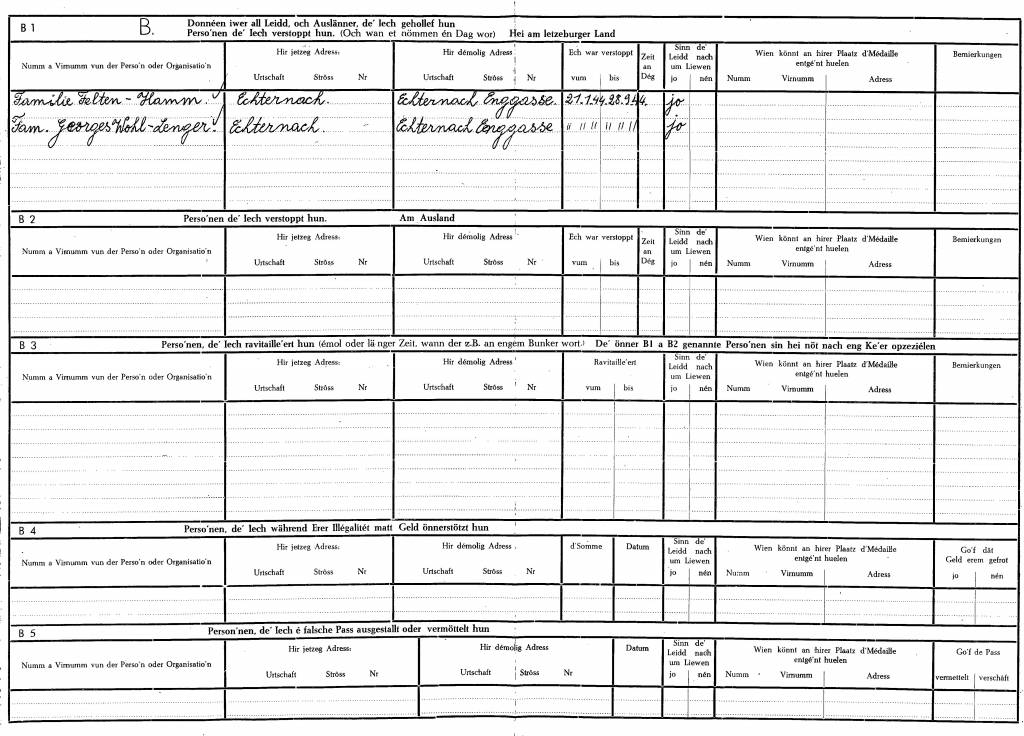 B 1
B.
Donnéen iwer all Leidd, och Auslänner, de' Iech gehollef hun
Perso'nen de' Iech verstoppt hun. (Och wan et nömmen én Dag wor) Hei am letzeburger Land
Numm a Virnumm vun der Perso'n oder Organisatio'n
Hir jetzeg Adress:
Urtschaft Ströss Nr
Hir démolig Adress
Urtschaft Ströss Nr
Ech war verstoppt
vum bis
Zeit an Dég
Sinn de' Leidd nach um Liewen
jo nén
Wien könnt an hirer Plaatz d'Médaille entgé'nt huelen
Numm Virnumm Adress
Bemierkungen
Familie Felten - Hamm. Echternach. Echternach Enggasse. 21.1.44. 28.9.44. jo
Fam. Georges Wohl-Lenger. Echternach. Echternach Enggasse " " " " " " jo
B 2
Perso'nen de' Iech verstoppt hun. Am Ausland
Numm a Virnumm vun der Perso'n oder Organisatio'n
Hir jetzeg Adress:
Urtschaft Ströss Nr
Hir démolig Adress
Urtschaft Ströss Nr
Ech war verstoppt
vum bis
Zeit an Dég
Sinn de' Leidd nach um Liewen
jo nén
Wien könnt an hirer Plaatz d'Médaille entgé'nt huelen
Numm Virnumm Adress
Bemierkungen
B 3
Perso'nen, de' Iech ravitaille'ert hun (émol oder lä nger Zeit, wann der z.B. an engem Bunker wort.) De' önner B1 a B2 genannte Perso'nen sin hei nöt nach eng Ke'er opzeziélen
Numm a Virnumm vun der Perso'n oder Organisatio'n
Hir jetzeg Adress:
Urtschaft Ströss Nr
Hir démolig Adress
Urtschaft Ströss Nr
Ravitaille'ert
vum bis
Sinn de' Leidd nach um Liewen
jo nén
Wien könnt an hirer Plaatz d'Médaille entgé'nt huelen
Numm Virnumm Adress
Bemierkungen
B 4
Perso'nen, de' Iech während Erer Illégalitét matt Geld önnerstötzt hun
Numm a Virnumm vun der Perso'n oder Organisatio'n
Hir jetzeg Adress:
Urtschaft Ströss Nr
Hir démolig Adress
Urtschaft Ströss Nr
d'Somme
Datum
Sinn de' Leidd nach um Liewen
jo nén
Wien könnt an hirer Plaatz d'Médaille entgé'nt huelen
Numm Virnumm Adress
Go'f dät Geld erem gefrot
jo nén
B 5
Person'nen, de' Iech é falsche Pass ausgestallt oder vermöttelt hun
Numm a Virnumm vun der Perso'n oder Organisatio'n
Hir jetzeg Adress:
Urtschaft Ströss Nr
Hir démolig Adress
Urtschaft Ströss Nr
Datum
Sinn de' Leidd nach um Liewen
jo nén
Wien könnt an hirer Plaatz d'Médaille entgé'nt huelen
Numm Virnumm Adress
Go'f de Pass
vermettelt verschäft